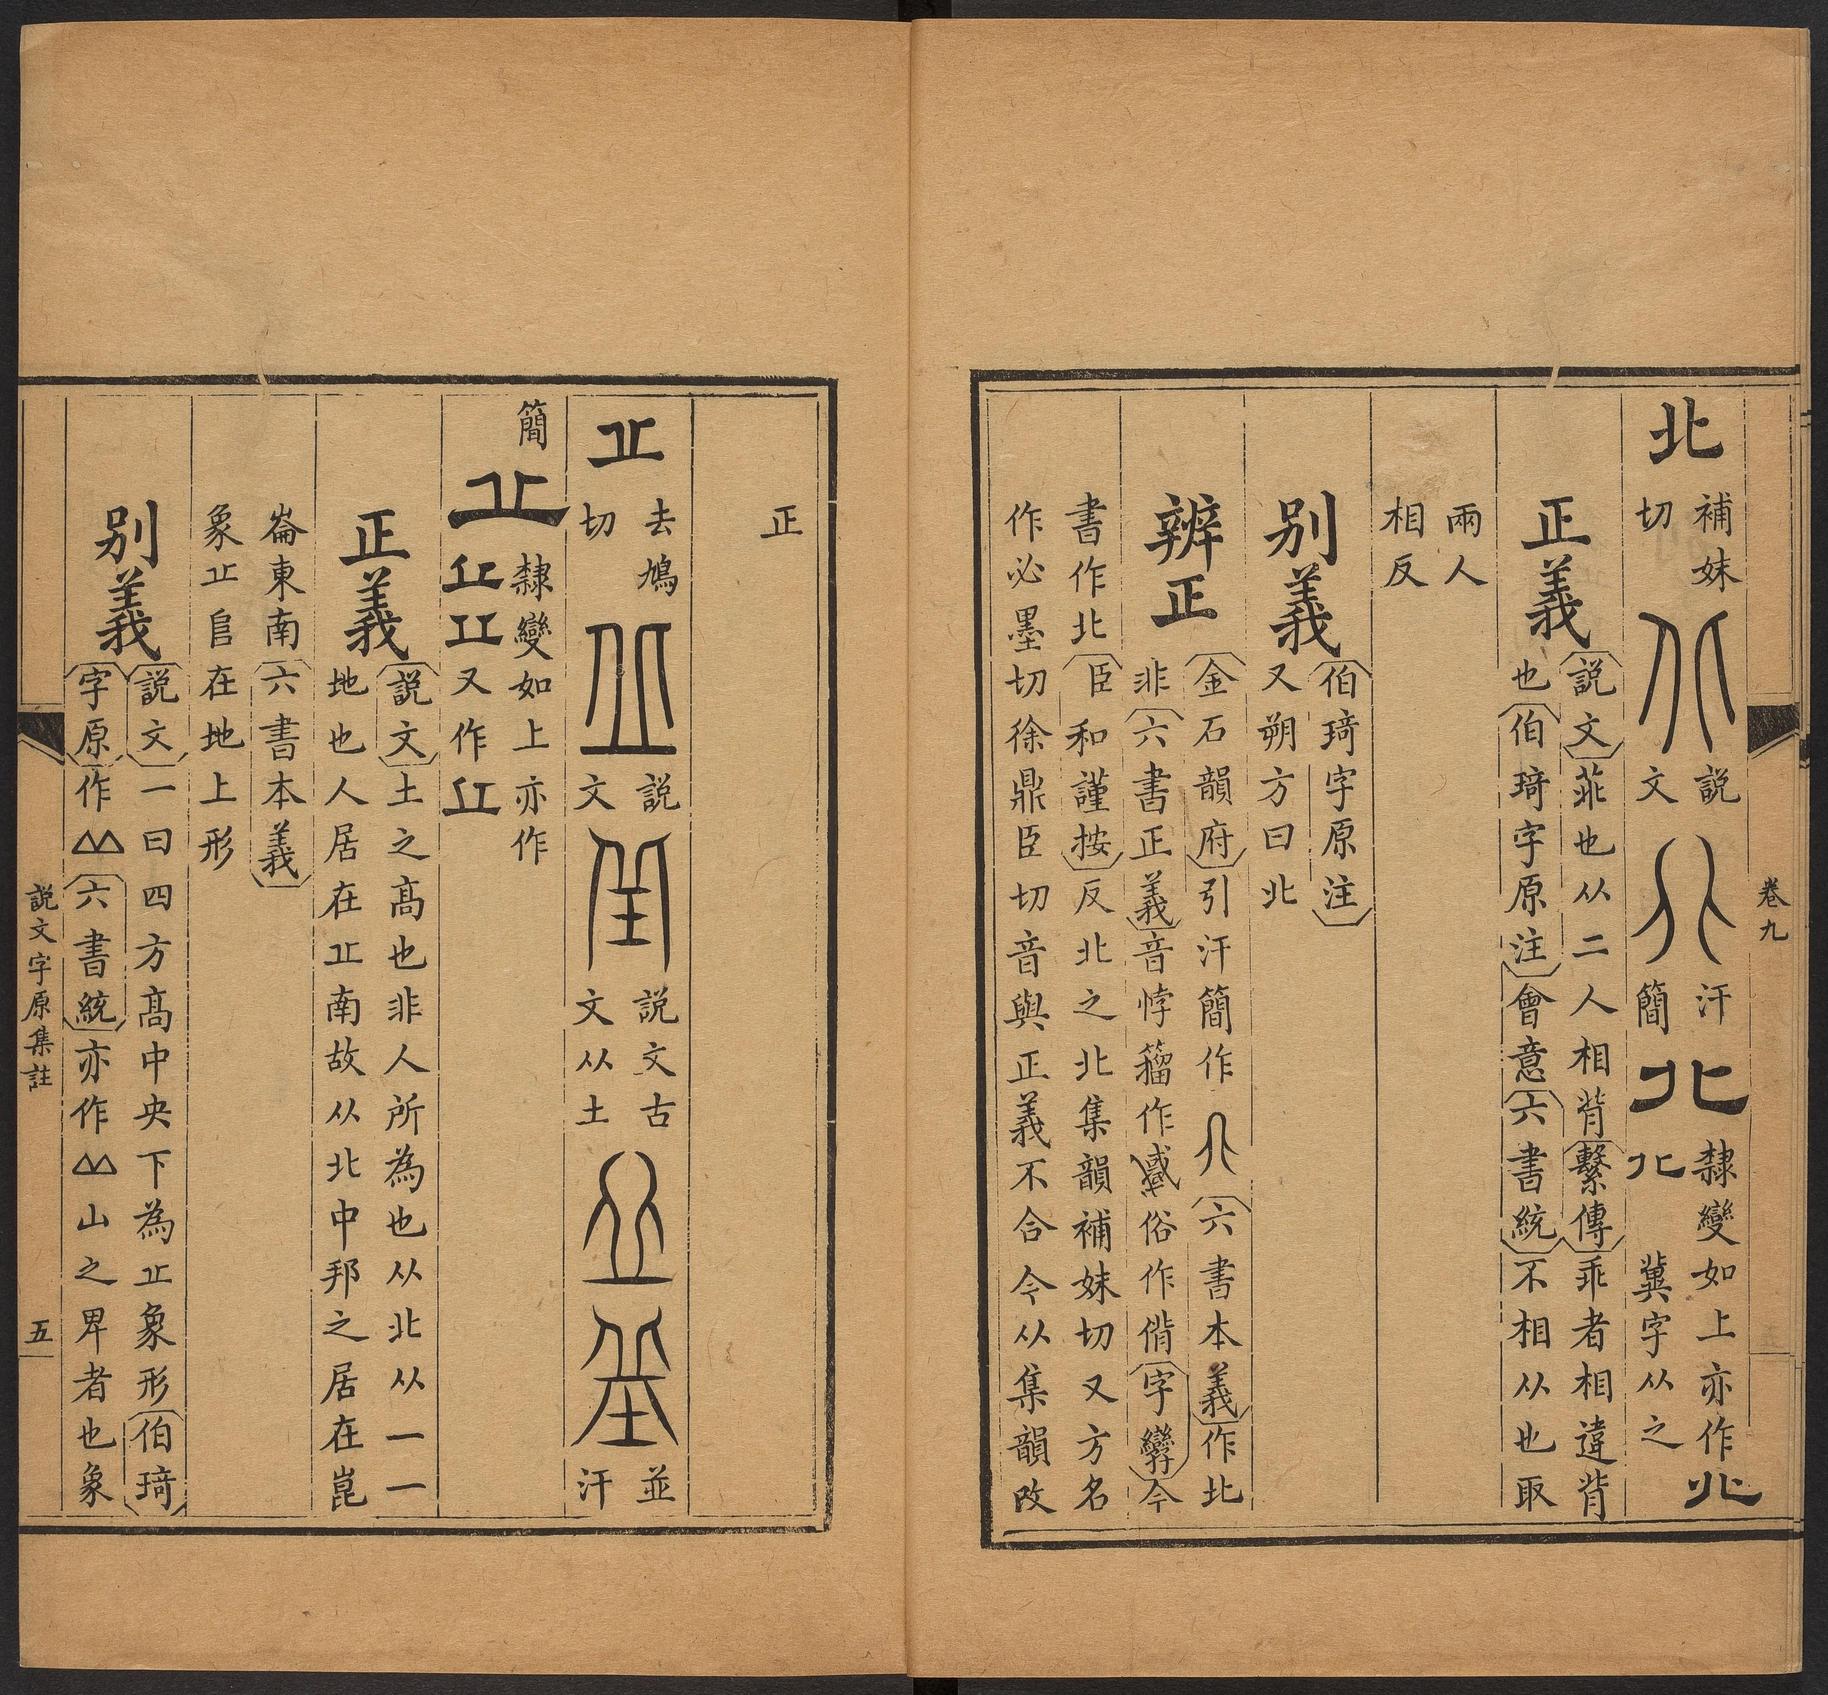 卷九
北
補妹
切
説
文
汗
簡
北
隸變如上亦作
北
冀字从之
正義
説文菲也从二人相背繫傳乖者相違背
也伯琦字原注會意六書統不相从也取
兩人
相反
别義
伯琦字原注
又朔方曰北
辨正
金石韻府引汗簡作六書本義作北
非六書正義音悖籀作俗作偝字孿今
書作北臣和謹按反北之北集韻補妹切又方名
作必墨切徐鼎臣切音與正義不合今从集韻改
正
丠
去鳩
切
説
文
説文古
文从土
並
汗
簡
丠
隸變如上亦作
丠
又作
正義
説文土之高也非人所為也从北从一一
地也人居在丠南故从北中邦之居在崑
崙東南六書本義
象丠㠯在地上形
别義
説文一曰四方高中央下為丠象形伯琦
字原作六書統亦作山之卑者也象
説文字原集註
五